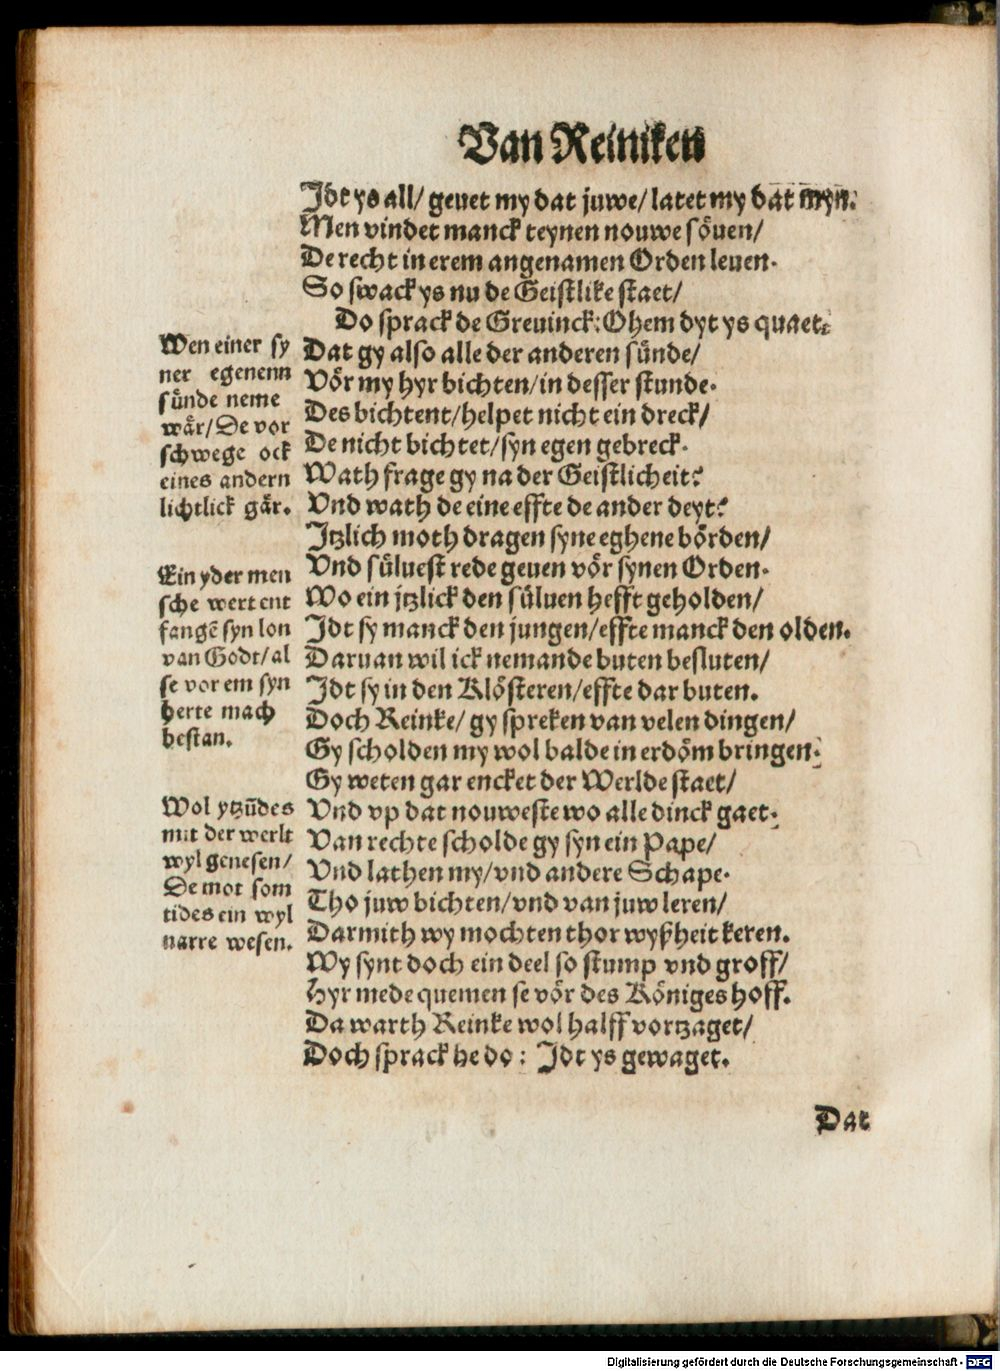 Van Reiniken
Jdt ys all/ geuet my dat juwe/ latet my dat myn.
Men vindet manck teynen nouwe söuen/
De recht in erem angenamen Orden leuen.
So swack ys nu de Geistlike staet/
Do sprack de Greuinck: Ohem dyt ys quaet.
Dat gy also alle der anderen sünde/
Vör my hyr bichten/ in desser stunde.
Des bichtent/ helpet nicht ein dreck/
De nicht bichtet/ syn egen gebreck.
Wath frage gy na der Geistlicheit?
Vnd wath de eine effte de ander deyt?
Jtzlich moth dragen syne eghene börden/
Vnd süluest rede geuen vör synen Orden.
Wo ein jtzlick den süluen hefft geholden/
Jdt sy manck den jungen/ effte manck den olden.
Daruan wil ick nemande buten besluten/
Jdt sy in den Klösteren/ effte dar buten.
Doch Reinke/ gy spreken van velen dingen/
Gy scholden my wol balde in erdöm bringen.
Gy weten gar encket der Werlde staet/
Vnd vp dat nouweste wo alle dinck gaet.
Van rechte scholde gy syn ein Pape/
Vnd lathen my/ vnd andere Schape.
Tho juw bichten/ vnd van juw leren/
Darmith wy mochten thor wyßheit keren.
Wy synt doch ein deel so stump vnd groff/
Hyr mede quemen se vör des Königes hoff.
Da warth Reinke wol halff vortzaget/
Doch sprack he do: Jdt ys gewaget.
Wen einer sy
ner egenenn
sünde neme
wår/ De vor
schwege ock
eines andern
lichtlick går.
Ein yder men
sche wert ent
fangē syn lon
van Godt/ al
se vor em syn
herte mach
bestan.
Wol ytzūdes
mit der werlt
wyl genesen/
De mot som
tides ein wyl
narre wesen.
Dat
Digitalisierung gefördert durch die Deutsche Forschungsgemeinschaft - DFG